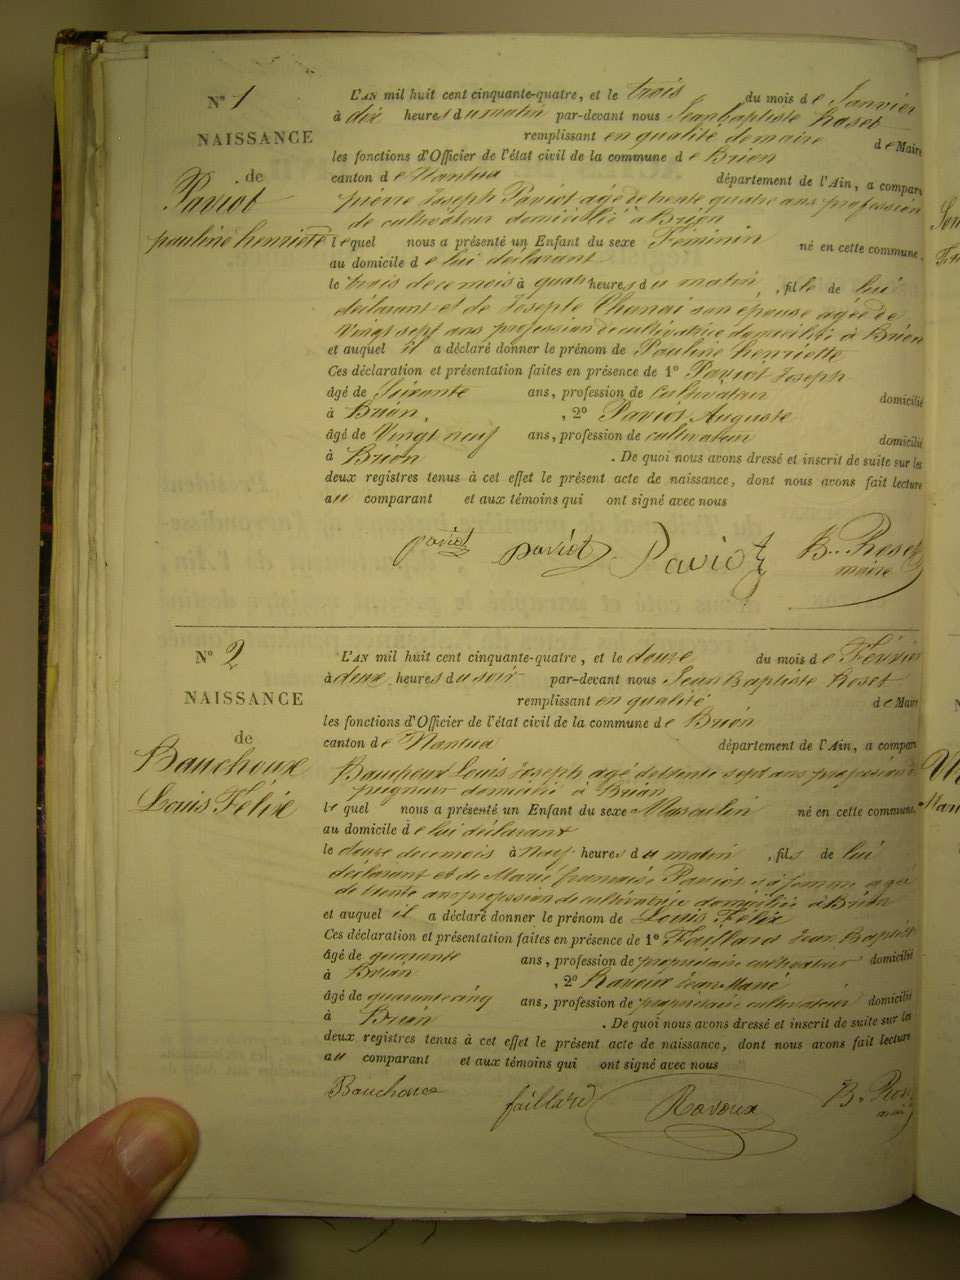 N° 1
NAISSANCE
de
Paviot
pauline henriette
L'AN mil huit cent cinquante-quatre, et le trois du mois de Janvier
à dix heures du matin par-devant nous Jean baptiste Roset
remplissant en qualité de maire de Maire
les fonctions d'Officier de l'état civil de la commune de Brion
canton de Nantua département de l'Ain, a comparu
pierre Joseph Paviot agé de trente quatre ans profession
de cultivateur domicilié à Brion
lequel nous a présenté un Enfant du sexe Féminin né en cette commune,
au domicile de lui déclarant
le trois de ce mois à quatre heures du matin, fille de lui
déclarant et de Josepte Chanai son épouse agée de
Vingt sept ans profession de cultivatrice domiciliée à Brion
et auquel il a déclaré donner le prénom de Pauline henriette
Ces déclaration et présentation faites en présence de 1° Paviot Joseph
âgé de Soixante ans, profession de cultivateur domicilié
à Brion, 2° Paviot Auguste
âgé de Vingt neuf ans, profession de cultivateur domicilié
à Brion. De quoi nous avons dressé et inscrit de suite sur les
deux registres tenus à cet effet le présent acte de naissance, dont nous avons fait lecture
au comparant et aux témoins qui ont signé avec nous
paviot paviot Paviot B. Roset
maire
N° 2
NAISSANCE
de
Bauchoux
Louis Félix
L'AN mil huit cent cinquante-quatre, et le douze du mois de Février
à deux heures du soir par-devant nous Jean Baptiste Roset
remplissant en qualité de Maire
les fonctions d'Officier de l'état civil de la commune de Brion
canton de Nantua département de l'Ain, a comparu
Bauchoux Louis Joseph agé de trente sept ans profession de
peigneur domicilié à Brion
lequel nous a présenté un Enfant du sexe Masculin né en cette commune,
au domicile de lui déclarant
le douze de ce mois à neuf heures du matin, fils de lui
déclarant et de Marie françoise Paviot sa femme agée
de trente ans profession de cultivatrice domiciliée à Brion
et auquel il a déclaré donner le prénom de Louis Félix
Ces déclaration et présentation faites en présence de 1° Faillard Jean Baptiste
âgé de quarante ans, profession de propriétaire cultivateur domicilié
à Brion, 2° Ravoux Jean Marie
âgé de quarante cinq ans, profession de propriétaire cultivateur domicilié
à Brion. De quoi nous avons dressé et inscrit de suite sur les
deux registres tenus à cet effet le présent acte de naissance, dont nous avons fait lecture
au comparant et aux témoins qui ont signé avec nous
Bauchoux faillard Ravoux B. Roset